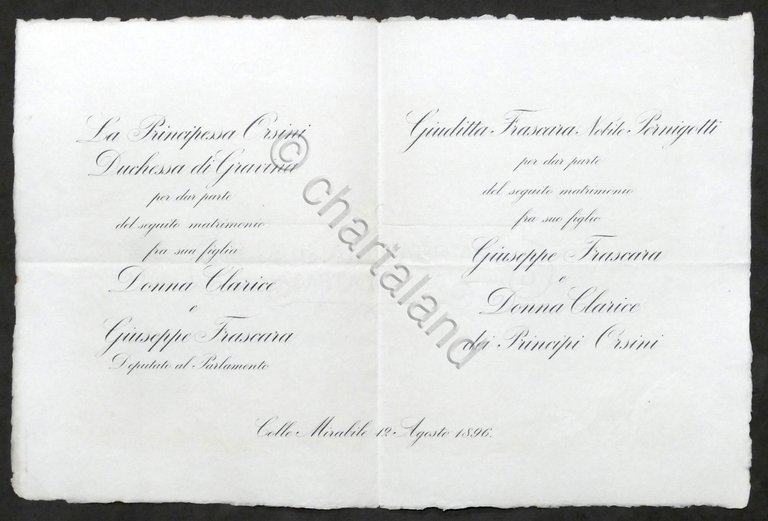 La Principessa Orsini
Duchessa di Gravina
per dar parte
del seguito matrimonio
fra sua figlia
Donna Clarice
e
Giuseppe Frascara
Deputato al Parlamento
Giuditta Frascara Nobile Pernigotti
per dar parte
del seguito matrimonio
fra suo figlio
Giuseppe Frascara
e
Donna Clarice
dei Principi Orsini
Colle Mirabile 12 Agosto 1896.
© chartaland